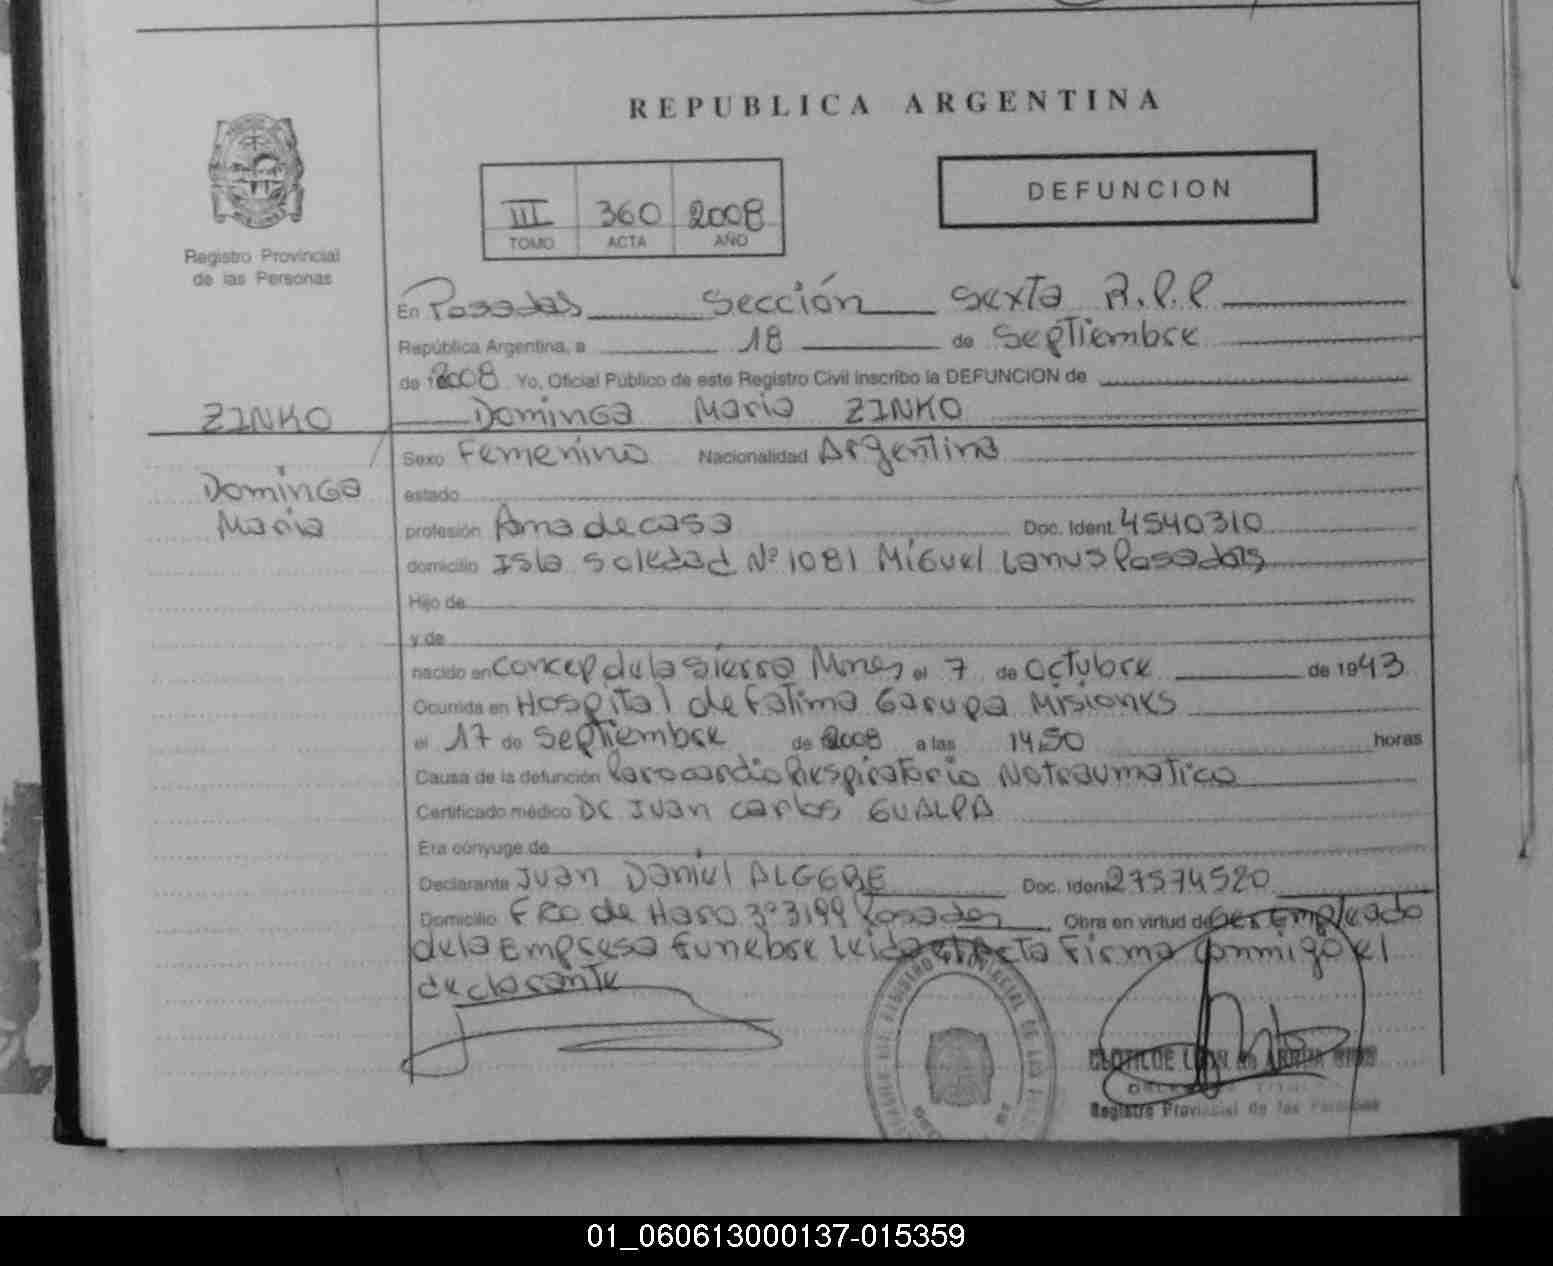 REPUBLICA ARGENTINA
Registro Provincial
de las Personas
III 360 2008
TOMO ACTA AÑO
DEFUNCION
En Posadas Sección Sexta R.P.P
República Argentina, a 18 de Septiembre
de 2008 Yo, Oficial Público de este Registro Civil inscribo la DEFUNCION de
ZINKO Dominga Maria ZINKO
Sexo Femenino Nacionalidad Argentina
Dominga estado
Maria profesión Ama de casa Doc. Ident. 4540310
domicilio Isla Soledad Nº 1081 Miguel Lanus Posadas
Hijo de
y de
nacido en Concep de la Sierra Mnes el 7 de Octubre de 1943
Ocurrida en Hospital de Fatima Garupa Misiones
el 17 de Septiembre de 2008 a las 14,50 horas
Causa de la defunción Parocardio Respiratorio No traumatico
Certificado médico Dr Juan Carlos GUALPA
Era cónyuge de
Declarante Juan Daniel Doc. Ident 27574520
Domicilio Fco de Haro 3199 Posadas Obra en virtud de Ser Empleado
de la Empresa Funebre Leida el Acta Firma Conmigo el
declarante
CLOTILDE
Registro Provincial de las Personas
01_060613000137-015359